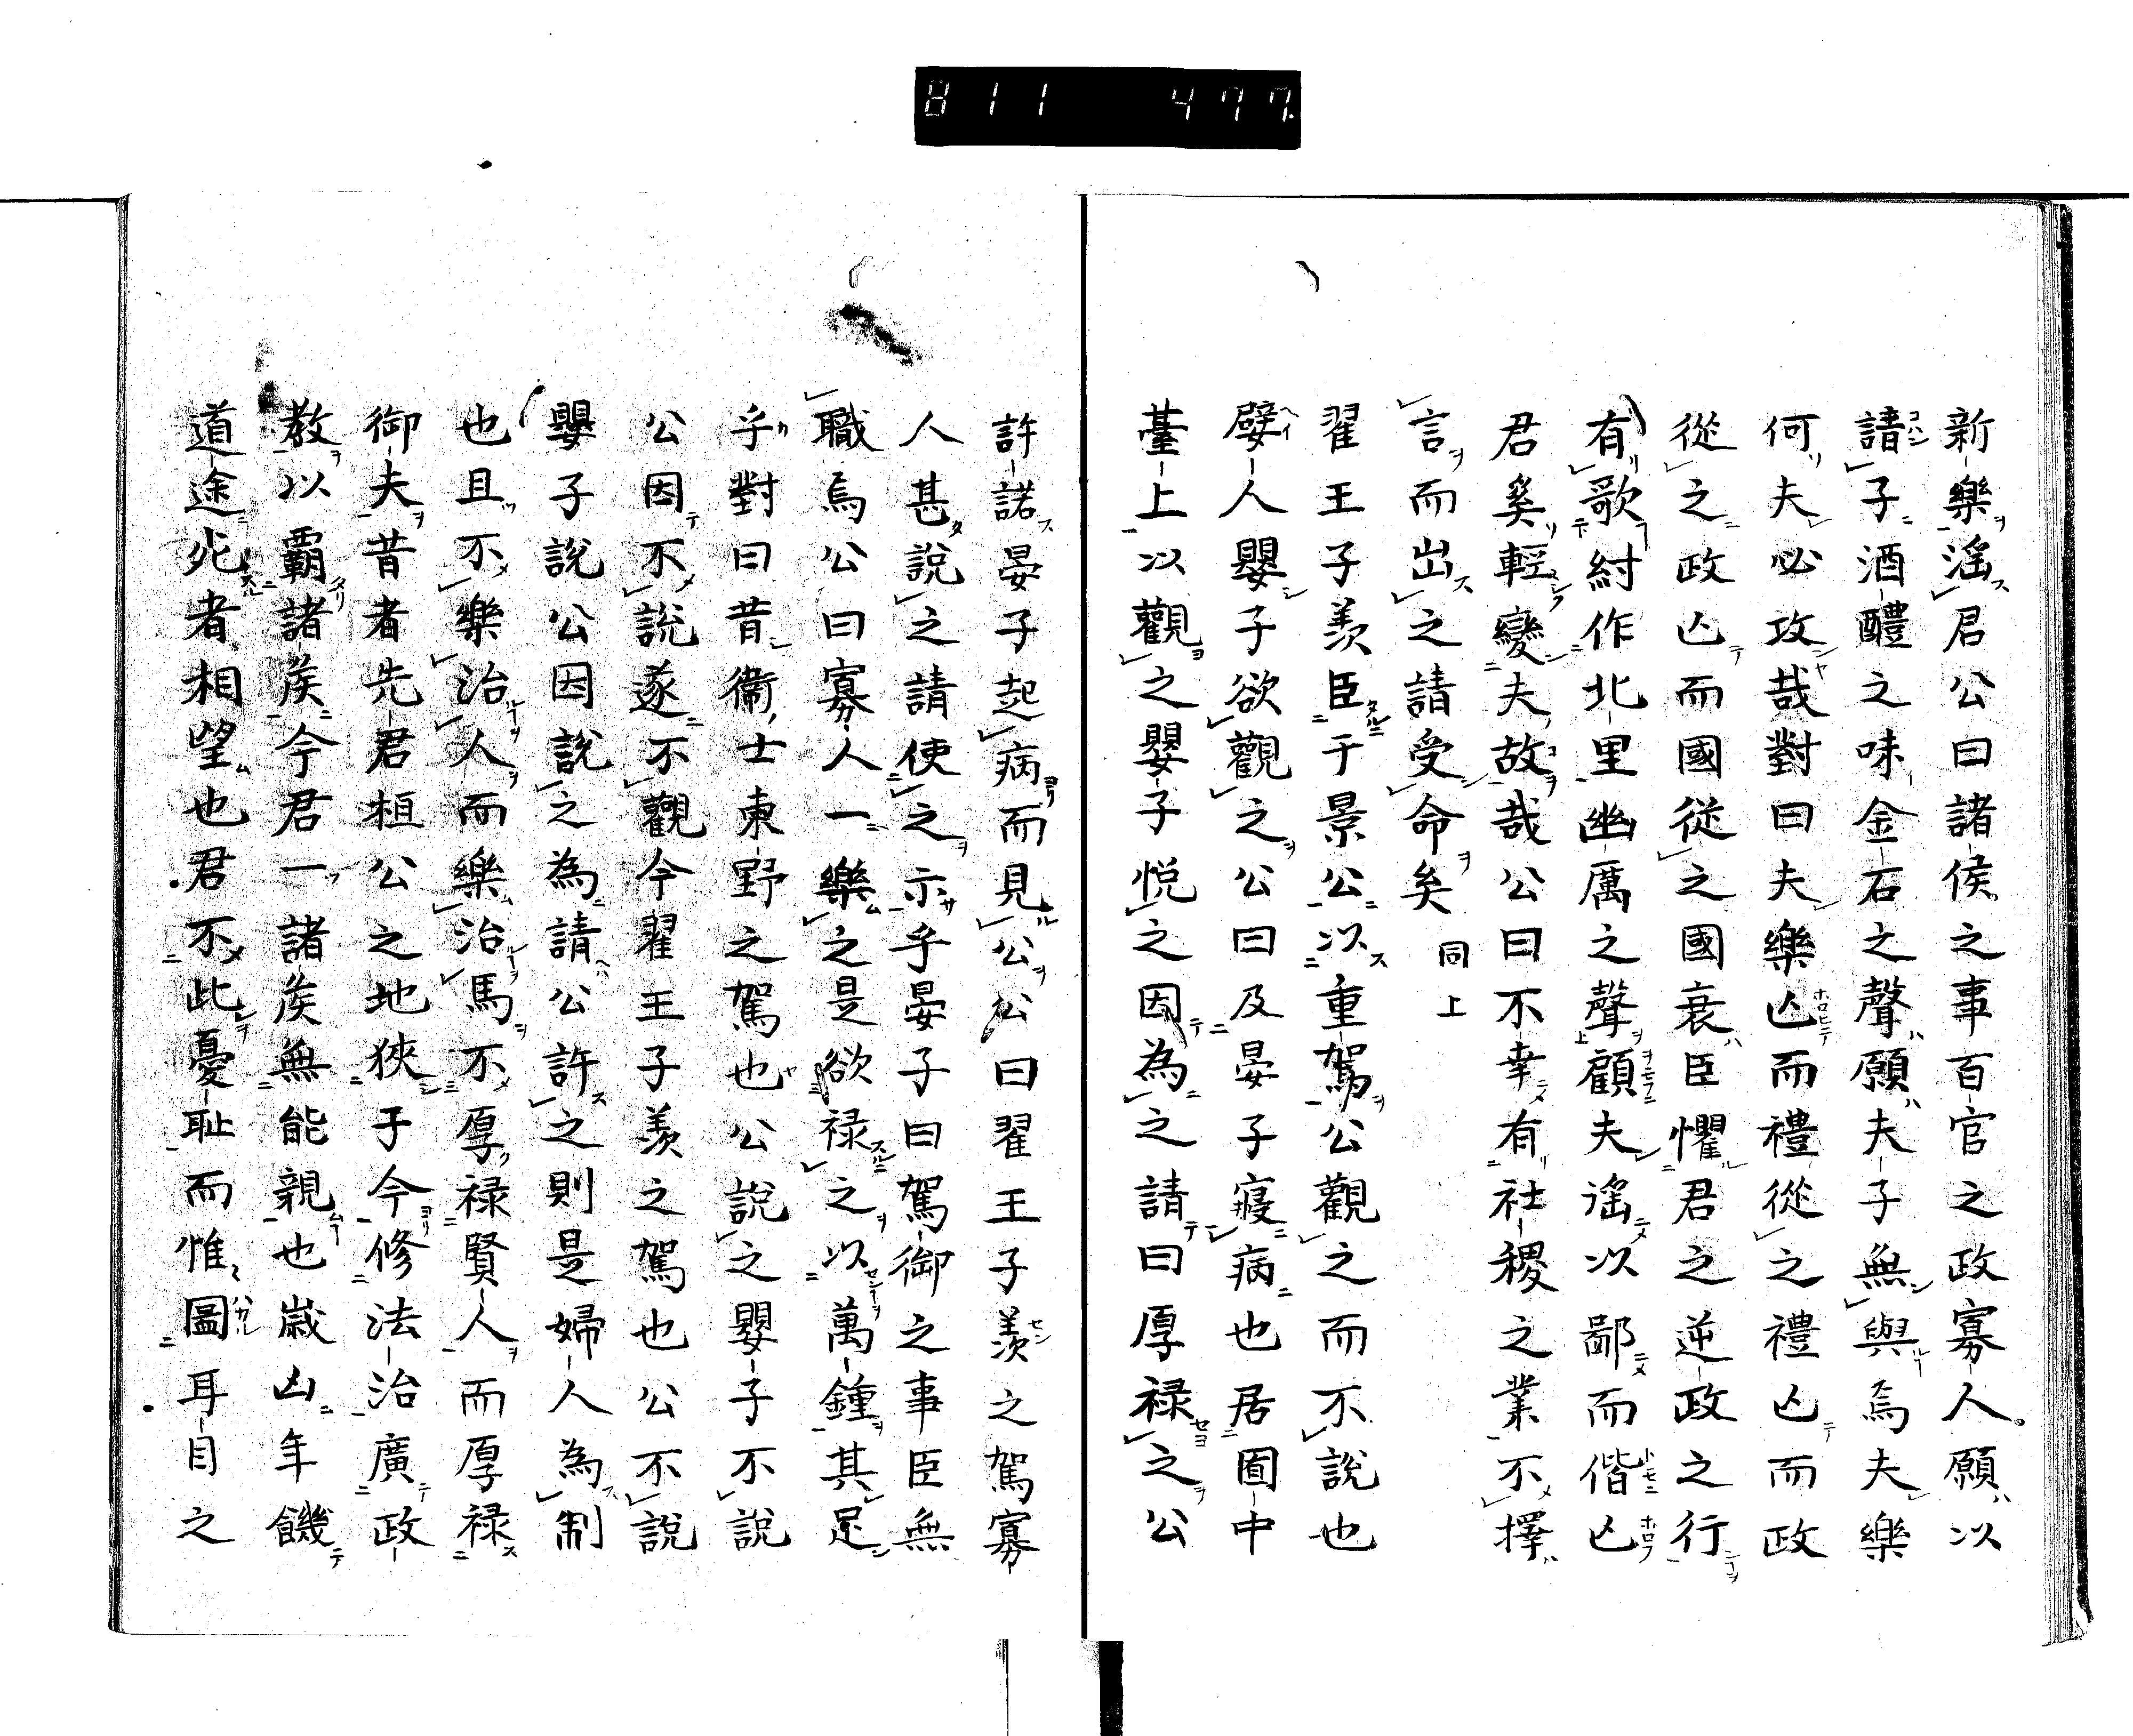 811 477.
新樂淫君公曰諸侯之事百官之政寡人願以
請子酒醴之味金石之聲願夫子無與焉夫樂
何夫必攻哉對曰夫樂亾而禮從之禮亾而政
從之政亾而國從之國衰臣懼君之逆政之行
有歌紂作北里幽厲之聲顧夫淫以鄙而偕亾
君奚輕變夫故哉公曰不幸有社稷之業不擇
言而出之請受命矣 同上
翟王子羨臣于景公以重駕公觀之而不說也
嬖人嬰子欲觀之公曰及晏子寢病也居囿中
臺上以觀之嬰子悅之因為之請曰厚祿之公
許諾晏子起病而見公公曰翟王子羨之駕寡
人甚說之請使之示乎晏子曰駕御之事臣無
職焉公曰寡人一樂之是欲祿之以萬鍾其足
乎對曰昔衞士東野之駕也公說之嬰子不說
公因不說遂不觀今翟王子羨之駕也公不說
嬰子說公因說之為請公許之則是婦人為制
也且不樂治人而樂治馬不厚祿賢人而厚祿
御夫昔者先君桓公之地狹于今修法治廣政
教以霸諸矦今君一諸矦無能親也歲凶年饑
道途死者相望也君不此憂耻而惟圖耳目之